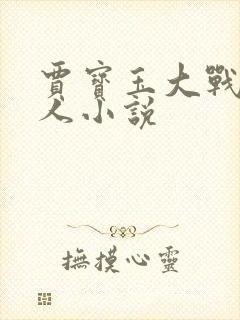 賈寶玉大戰
人小說
撫摸心靈